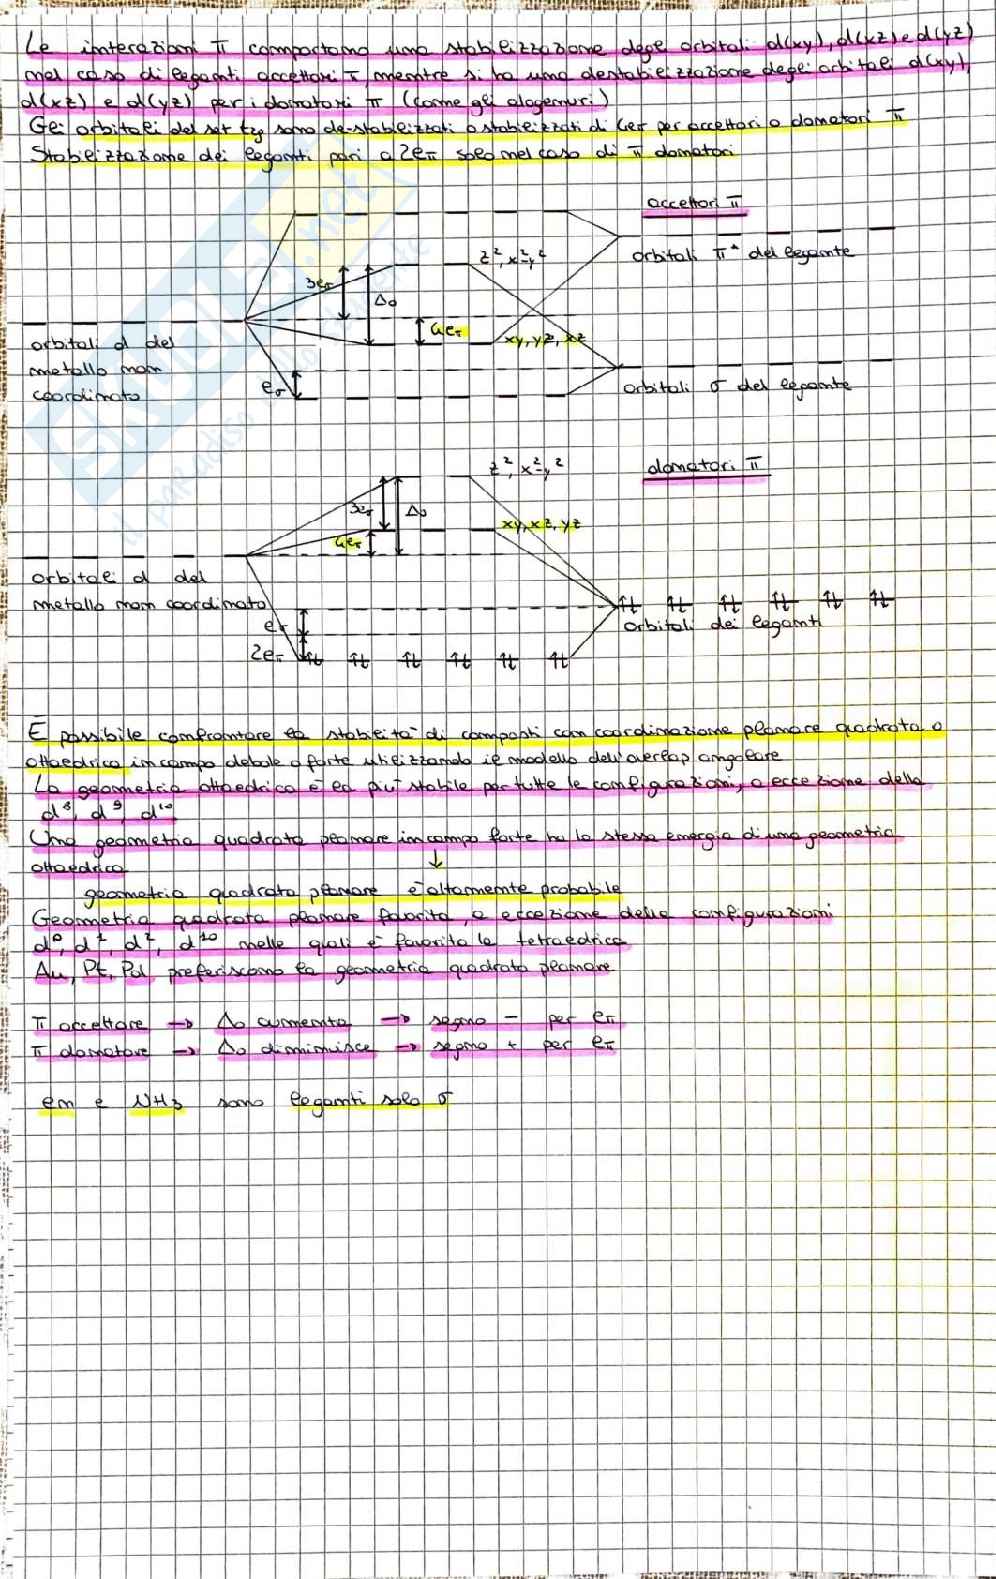 Le interazioni π comportano una stabilizzazione degli orbitali d(xy), d(xz) e d(yz)
nel caso di leganti accettori π, mentre si ha una destabilizzazione degli orbitali d(xy),
d(xz) e d(yz) per i donatori π (come gli alogenuri)
Gli orbitali del set t2g sono de-stabilizzati o stabilizzati di 4eπ per accettori o donatori π
Stabilizzazione dei leganti pari a 2eπ solo nel caso di π donatori
accettori π
orbitali π* del legante
z², x²-y²
3eσ
Δo
4eπ
xy, yz, xz
orbitali d del
metallo non
coordinato
eσ
orbitali σ del legante
z², x²-y²
donatori π
3eσ
Δo
xy, xz, yz
4eπ
orbitali d del
metallo non coordinato
orbitali dei leganti
eσ
2eπ
È possibile confrontare la stabilità di composti con coordinazione planare quadrata o
ottaedrica in campo debole o forte utilizzando il modello dell'overlap angolare
La geometria ottaedrica è la più stabile per tutte le configurazioni, a eccezione della
d⁸, d⁹, d¹⁰
Una geometria quadrato planare in campo forte ha la stessa energia di una geometria
ottaedrica
↓
geometria quadrato planare è altamente probabile
Geometria quadrata planare favorita, a eccezione delle configurazioni
d⁰, d¹, d², d¹⁰ nelle quali è favorita la tetraedrica
Au, Pt, Pd preferiscono la geometria quadrato planare
π accettore → Δo aumenta → segno - per eπ
π donatore → Δo diminuisce → segno + per eπ
en e NH3 sono leganti solo σ